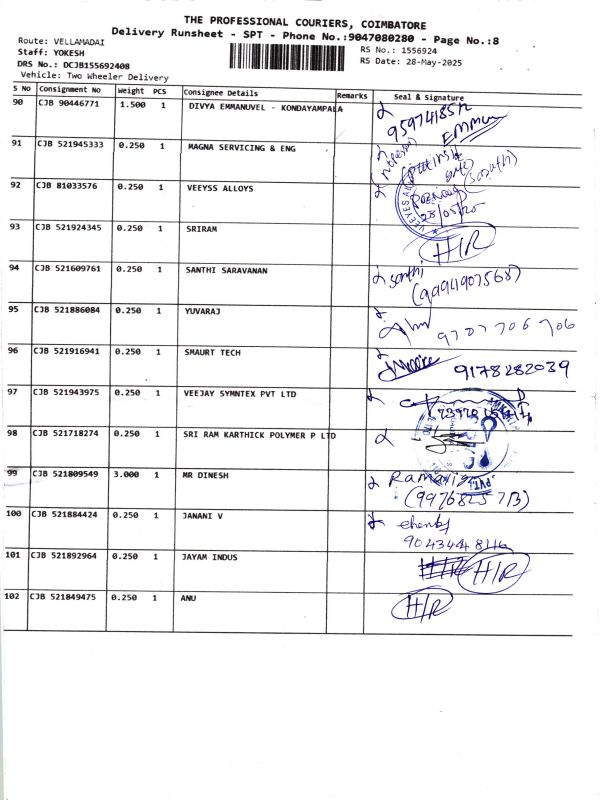 THE PROFESSIONAL COURIERS, COIMBATORE
Delivery Runsheet - SPT - Phone No.:9047080280 - Page No.:8
Route: VELLAMADAI
Staff: YOKESH
DRS No.: DCJB155692408
Vehicle: Two Wheeler Delivery
RS No.: 1556924
RS Date: 28-May-2025
S No Consignment No Weight PCS Consignee Details Remarks Seal & Signature
90 CJB 90446771 1.500 1 DIVYA EMMANUVEL - KONDAYAMPALA
91 CJB 521945333 0.250 1 MAGNA SERVICING & ENG
92 CJB 81033576 0.250 1 VEEYSS ALLOYS
28/05/25
93 CJB 521924345 0.250 1 SRIRAM H/R
94 CJB 521609761 0.250 1 SANTHI SARAVANAN Santhi
(9994907568)
95 CJB 521886084 0.250 1 YUVARAJ
9707706706
96 CJB 521916941 0.250 1 SMAURT TECH 9178282039
97 CJB 521943975 0.250 1 VEEJAY SYMNTEX PVT LTD
98 CJB 521718274 0.250 1 SRI RAM KARTHICK POLYMER P LTD
99 CJB 521809549 3.000 1 MR DINESH
100 CJB 521884424 0.250 1 JANANI V
9043444846
101 CJB 521892964 0.250 1 JAYAM INDUS H/R
102 CJB 521849475 0.250 1 ANU H/R